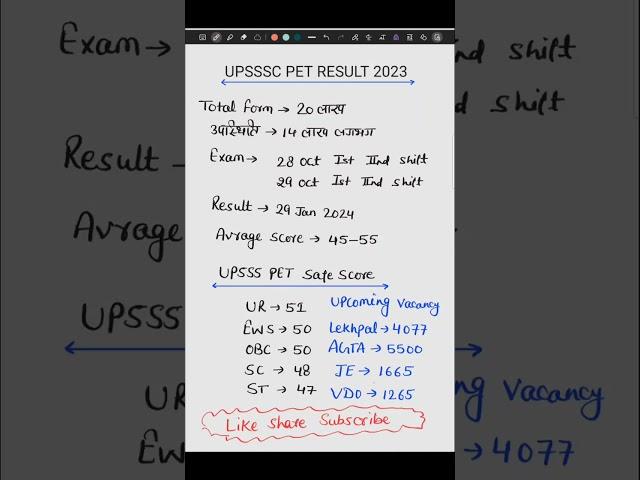 UPSSSC PET RESULT 2023
Total form → 20 लाख
उपस्थिति → 14 लाख लगभग
Exam → 28 Oct Ist IInd shift
29 Oct Ist IInd shift
Result → 29 Jan 2024
Avrage score → 45-55
UPSSS PET Safe Score
UR → 51
EWS → 50
OBC → 50
SC → 48
ST → 47
UPcoming Vacancy
Lekhpal → 4077
AGTA → 5500
JE → 1665
VDO → 1265
Like Share Subscribe
Exam →
Result
Avrage
UPSSS
UR
EWS
IInd shift
IInd shift
Vacancy
→ 4077